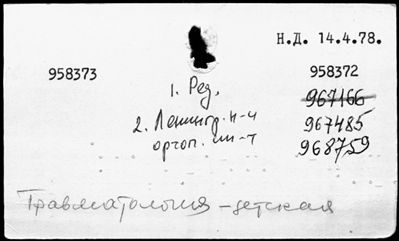 Н.Д. 14.4.78.
958373
958372
1. Ред.
967166
2. Ленингр. н-и
967485
ортоп. ин-т
968759
Травматология - детская